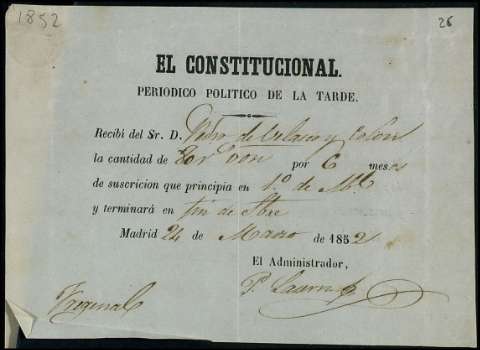 1852
26
EL CONSTITUCIONAL.
PERIODICO POLITICO DE LA TARDE.
Recibí del Sr. D. Pedro de Velasco y Colon
la cantidad de por 6 meses
de suscricion que principia en 1.º de
y terminará en fin de Sbre
Madrid 24 de Marzo de 1852
El Administrador,
P.